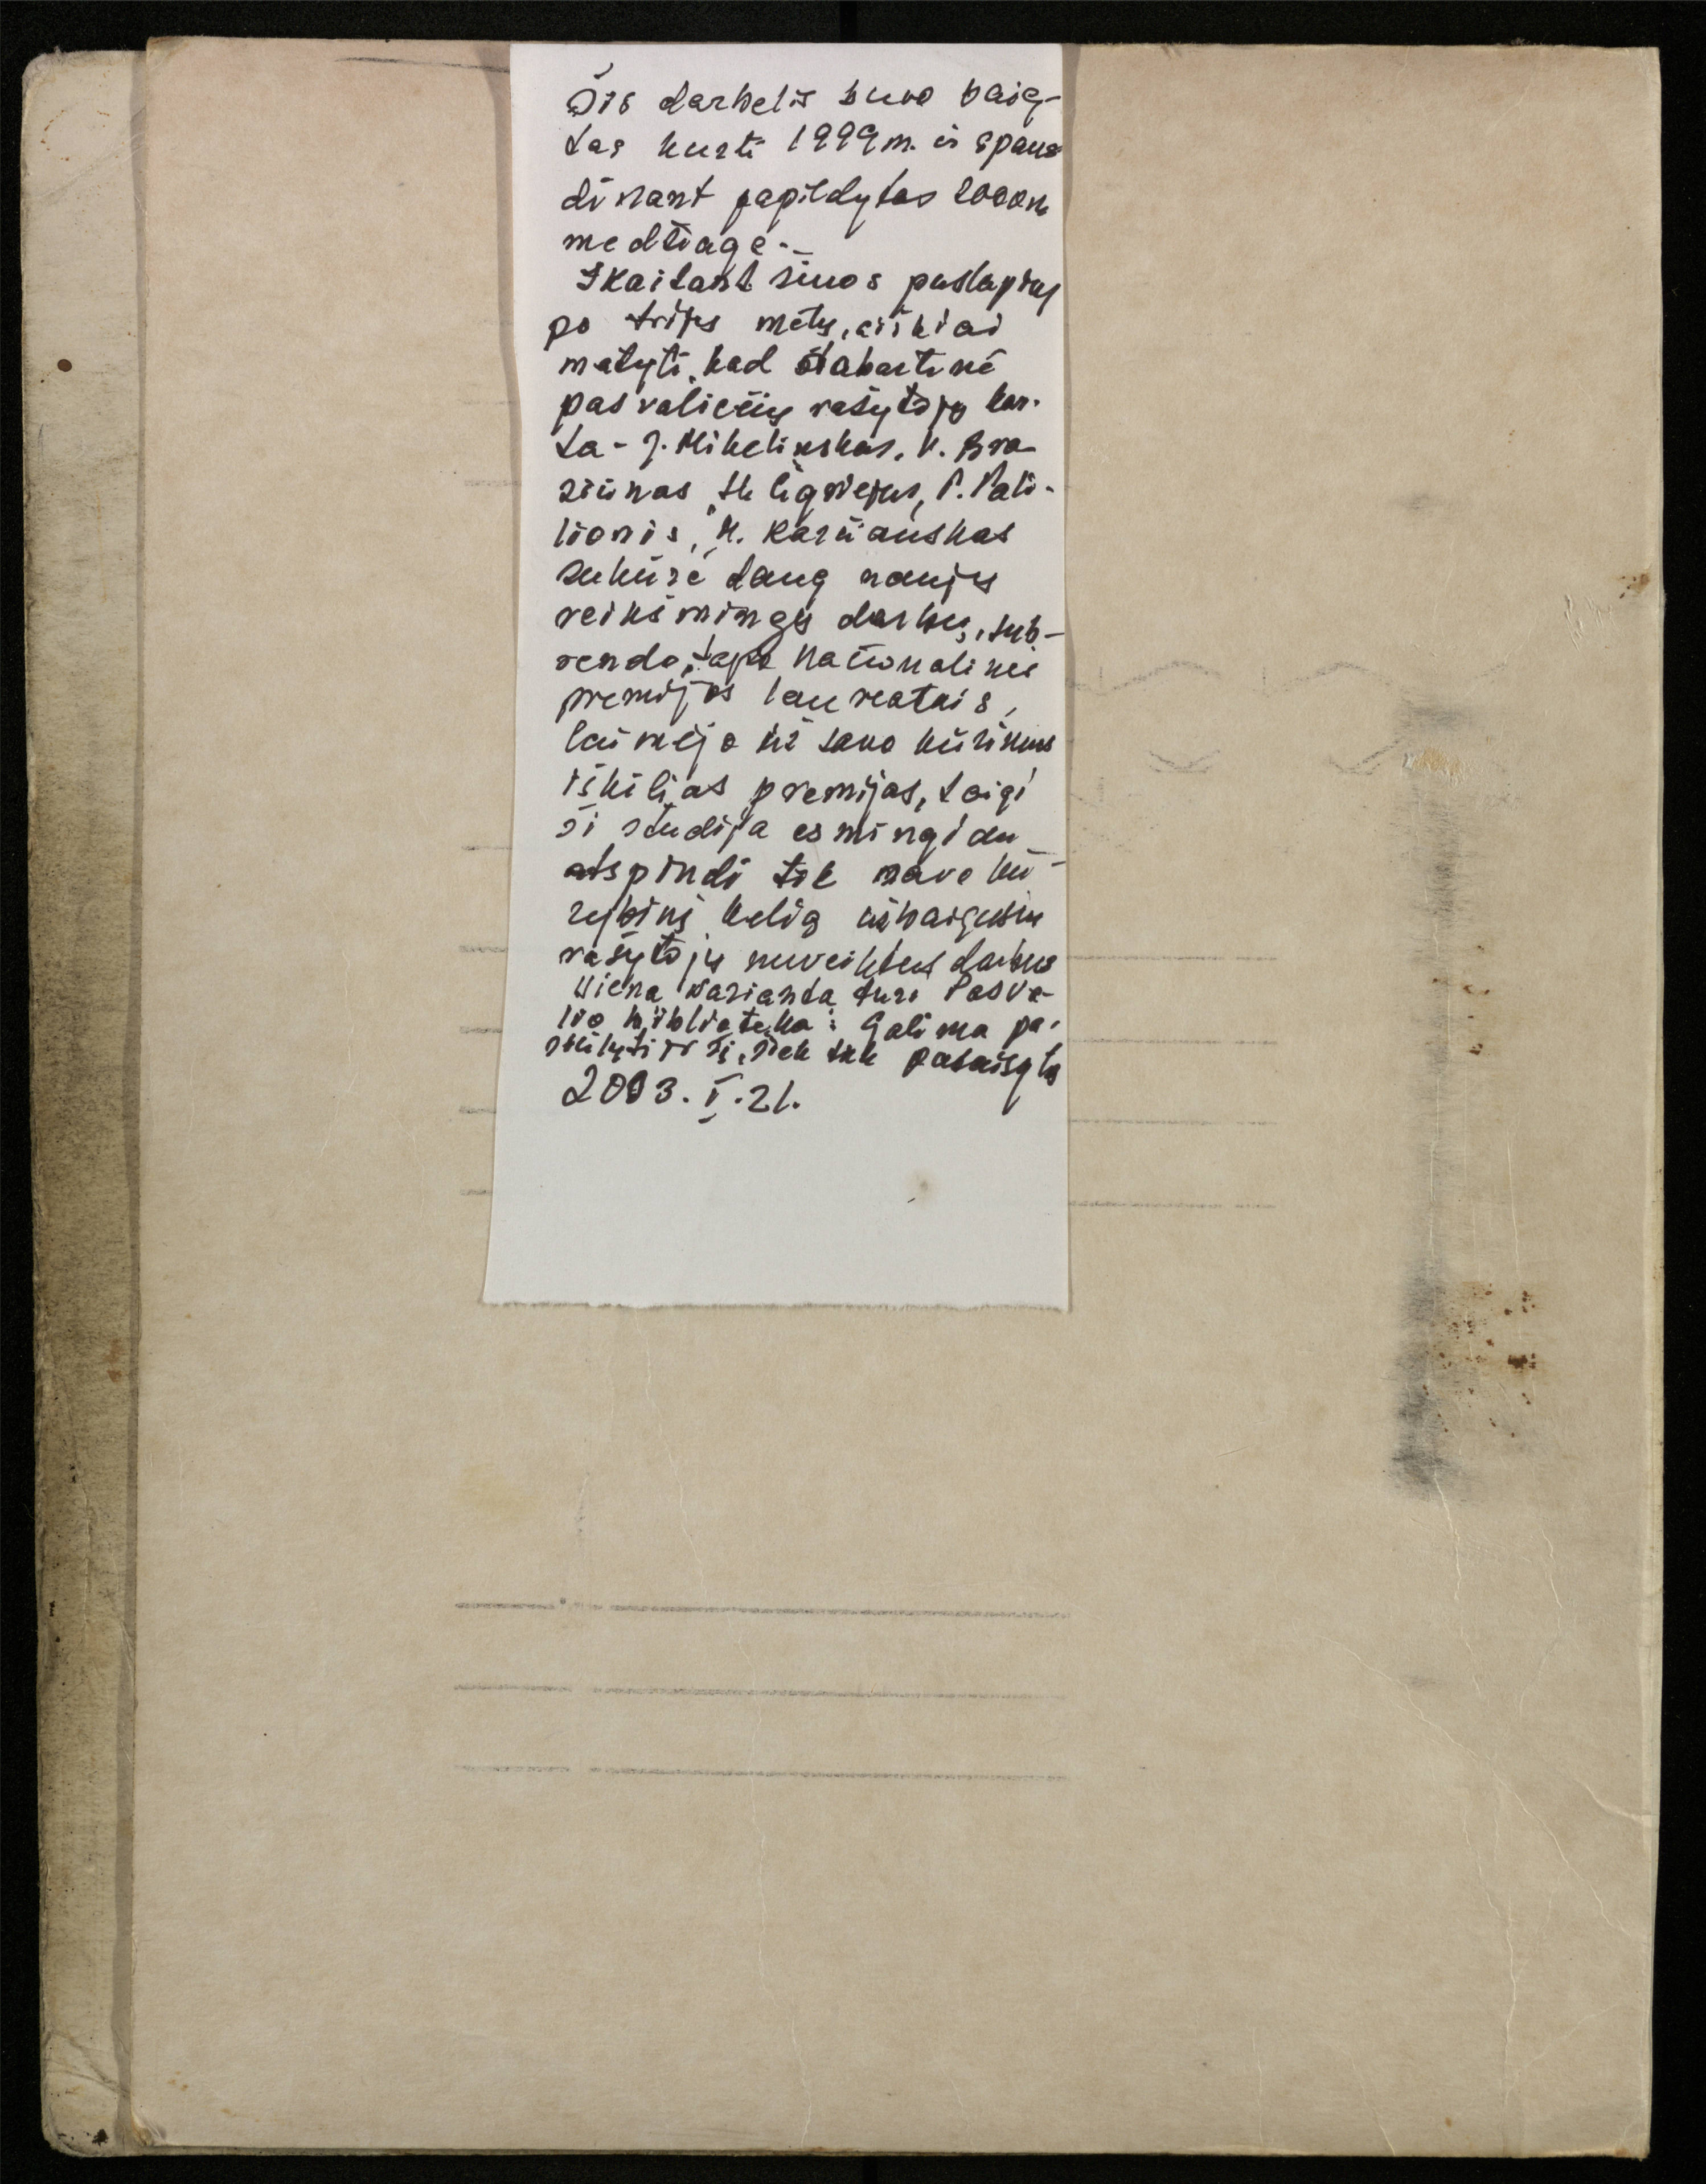 Šis darbelis buvo baig-
tas kurti 1999 m. ir spaus
dinant papildytas 2000 m
medžiaga.-
Skaitant šiuos puslapius
po trijų metų, aiškiai
matyti, kad dabartinė
pasvaliečių rašytojų kar-
ta - J. Mikelinskas, V. Bra-
žiūnas, E. Ligniejus, P. Pali-
lionis, M. Karčiauskas
sukūrė daug naujų
reikšmingų darbų, sub-
rendo, tapo Nacionalinės
premijos laureatais,
laimėjo už savo kūrinius
iškilias premijas, taigi
ši studija esmingiau
atspindi tik savo kū-
rybinį kelią užbaigusių
rašytojų nuveiktus darbus
Vieną variantą turi Pasva-
lio biblioteka: Galima pa-
skaityti ir šį, šiek tiek pataisytą
2003. I. 21.